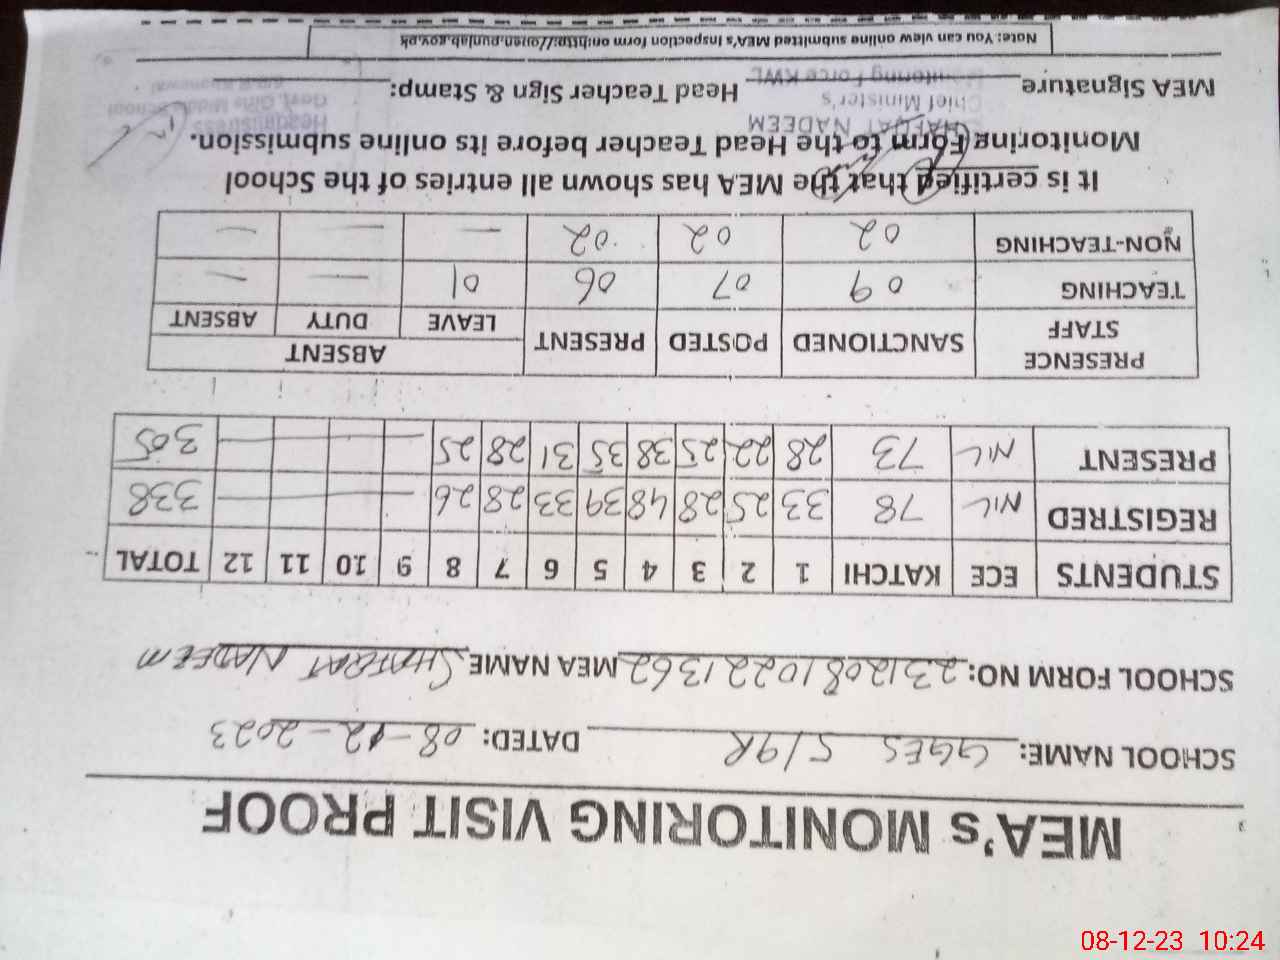 MEA's MONITORING VISIT PROOF
SCHOOL NAME: GGES 5/9R DATED: 08-12-2023
SCHOOL FORM NO: 231208102213 62 MEA NAME SHAFQAT NADEEM
STUDENTS ECE KATCHI 1 2 3 4 5 6 7 8 9 10 11 12 TOTAL
REGISTRED NIL 78 33 25 28 48 39 33 28 26 — 338
PRESENT NIL 73 28 22 25 38 35 31 28 25 — 305
PRESENCE STAFF SANCTIONED POSTED PRESENT ABSENT
LEAVE DUTY ABSENT
TEACHING 09 07 06 01 — —
NON-TEACHING 02 02 02 — — —
It is certified that the MEA has shown all entries of the School
Monitoring Form to the Head Teacher before its online submission.
SHAFQAT NADEEM
Chief Minister's
Monitoring Force KWL
Headmistress
Govt. Girls Middle School
MEA Signature Head Teacher Sign & Stamp:
Note: You can view online submitted MEA's inspection form on:http://open.punjab.gov.pk
08-12-23 10:24